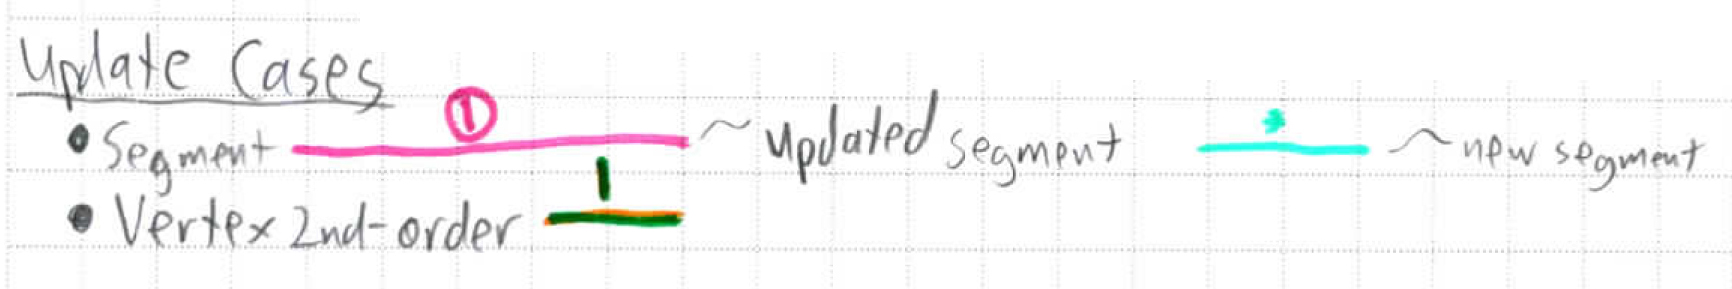 Update Cases
• Segment ① ~ updated segment * ~ new segment
• Vertex 2nd-order 1